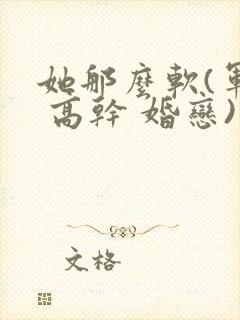 她那麼軟(軍
高幹 婚戀)
文格